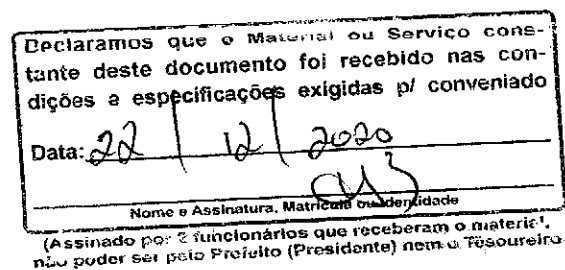 Declaramos que o Material ou Serviço cons-
tante deste documento foi recebido nas con-
dições e especificações exigidas p/ conveniado
Data: 22 / 12 / 2020
Nome e Assinatura, Matrícula ou Identidade
(Assinado por 2 funcionários que receberam o material,
não poder ser pelo Prefeito (Presidente) nem o Tesoureiro